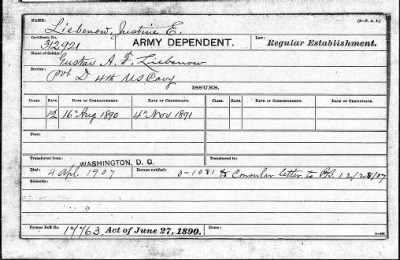 NAME:
(3-P. A. I.)
Liebenow, Justine E.
Certificate No.:
312921
ARMY DEPENDENT.
Law:
Regular Establishment.
Name of Soldier:
Gustav A. F. Liebenow
Service:
pvt D 4th US Cavy
ISSUES.
CLASS. DATE OF COMMENCEMENT. DATE OF CERTIFICATE. CLASS. DATE OF COMMENCEMENT. DATE OF CERTIFICATE.
12 16 Aug 1890 4 Nov 1891
Fees:
Transferred from: Transferred to:
WASHINGTON, D. C.
Died: Bureau notified:
4 Apl. 1907 3-1081 & Consular letter to 12/28/07
Remarks:
Former Roll No. 17763. Act of June 27, 1890.